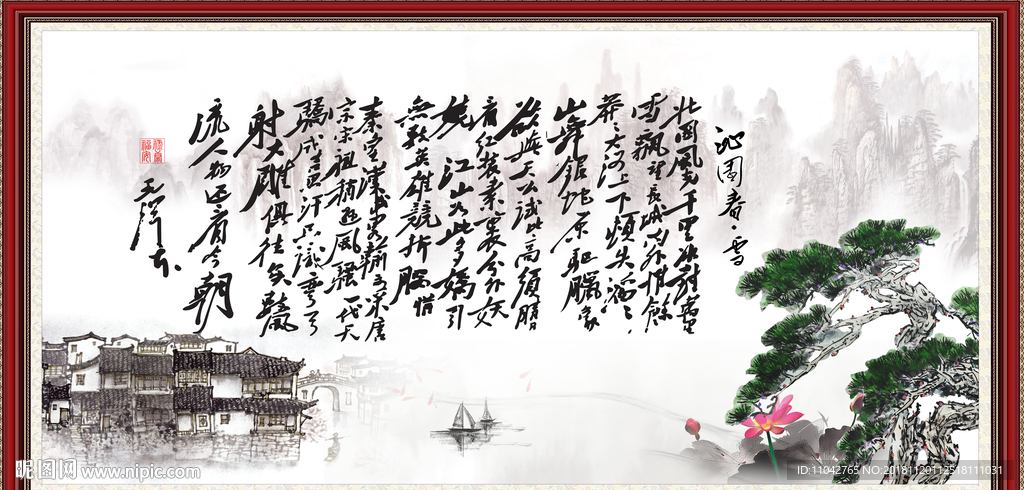 沁園春·雪
北國風光千里冰封萬里
雪飄望長城内外惟餘
莽莽大河上下頓失滔滔
山舞銀蛇原驰蠟象
欲與天公試比高須晴日
看红装素裹分外妖
嬈江山如此多嬌引
無數英雄競折腰惜
秦皇漢武略輸文采唐
宗宋祖稍逊風騷一代天
驕成吉思汗只識彎弓
射大雕俱往矣數風
流人物还看今朝
毛澤东
昵图网 www.nipic.com
ID:11042765 NO:20181120112518111031